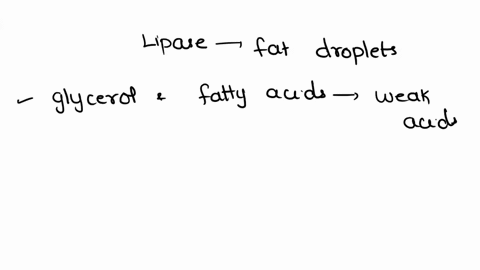 Lipase → fat droplets
✓ glycerol & fatty acids → weak
acids